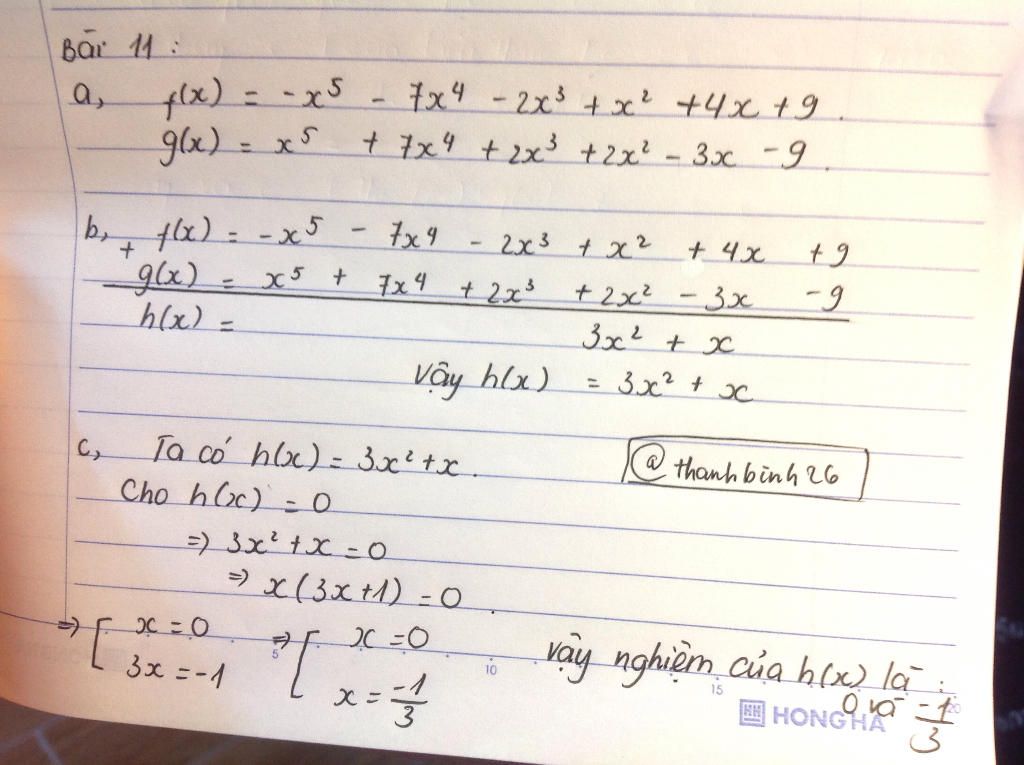 Bài 11 :
a, f(x) = -x⁵ - 7x⁴ - 2x³ + x² + 4x + 9 .
g(x) = x⁵ + 7x⁴ + 2x³ + 2x² - 3x - 9 .
b, f(x) = -x⁵ - 7x⁴ - 2x³ + x² + 4x + 9
+ g(x) = x⁵ + 7x⁴ + 2x³ + 2x² - 3x - 9
h(x) = 3x² + x
Vậy h(x) = 3x² + x
c, Ta có h(x) = 3x² + x .
@thanhbinh26
Cho h(x) = 0
=> 3x² + x = 0
=> x(3x+1) = 0 .
=> [ x = 0 => [ x = 0
3x = -1 x = -1/3
vậy nghiệm của h(x) là :
0 và -1/3
5 10 15 20
HH HONG HA